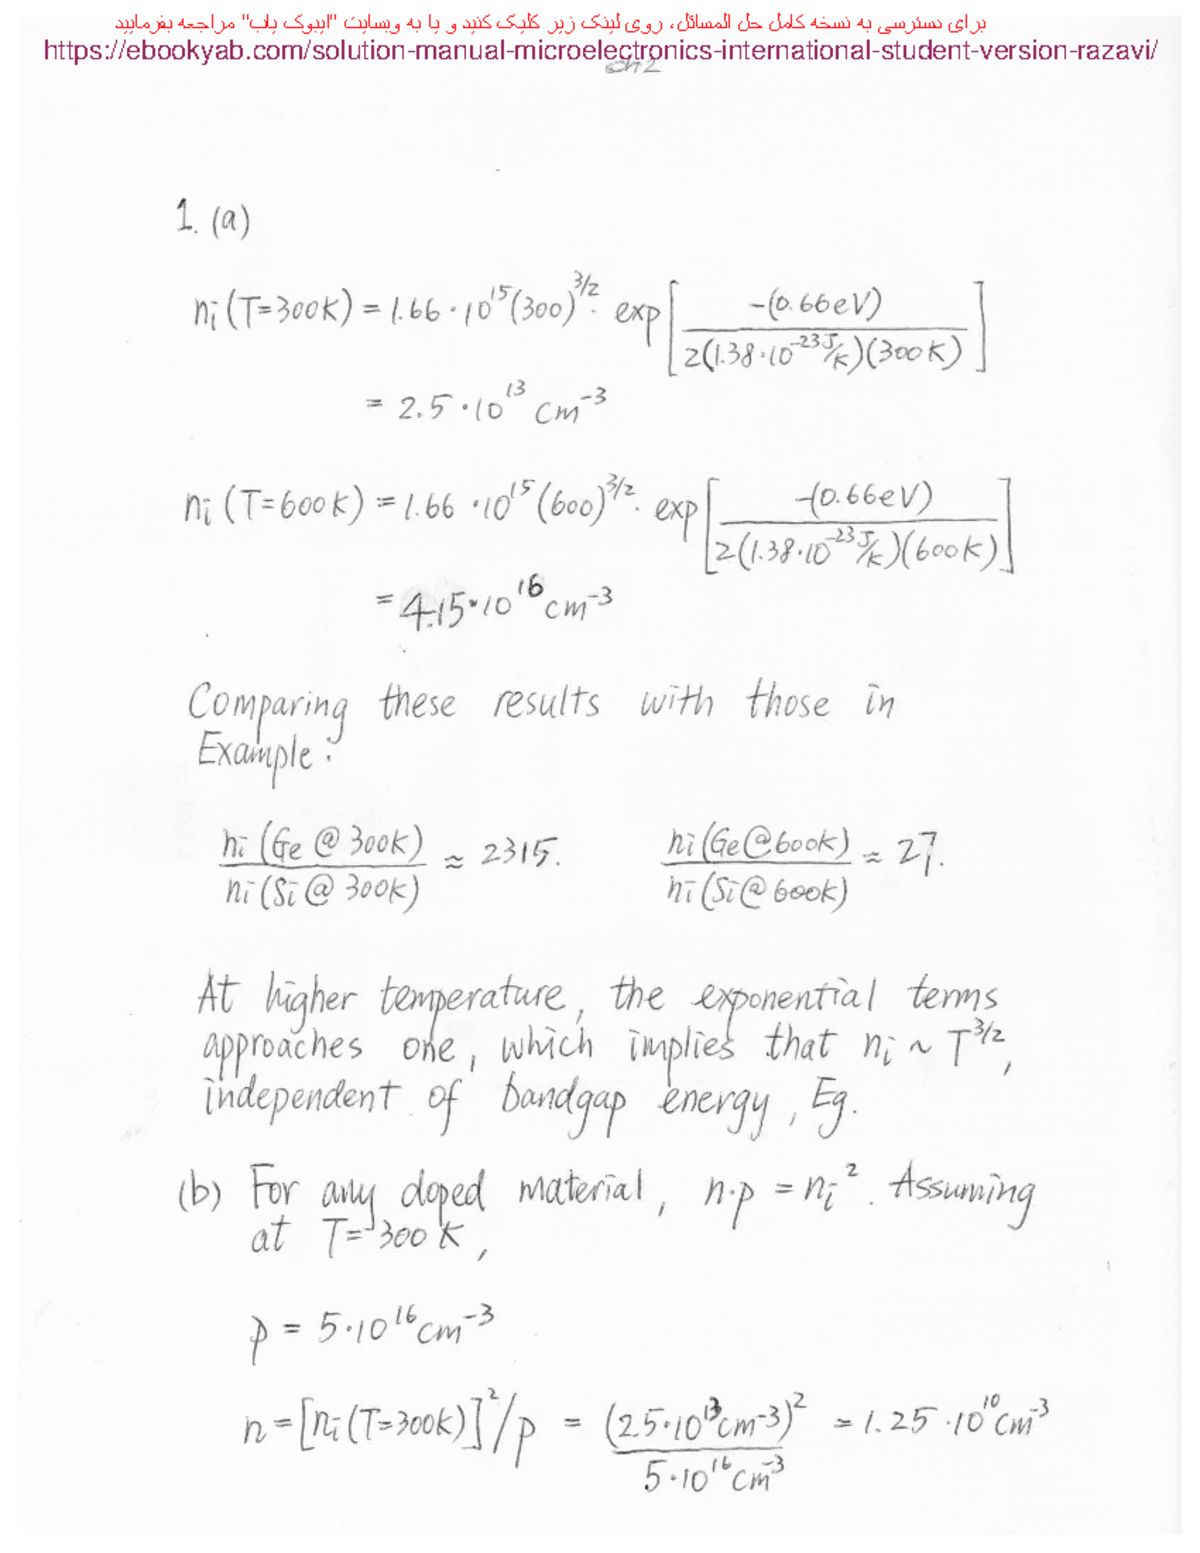 برای دسترسی به نسخه کامل حل المسائل، روی لینک زیر کلیک کنید و یا به وبسایت "ایبوک یاب" مراجعه بفرمایید
https://ebookyab.com/solution-manual-microelectronics-international-student-version-razavi/
Ch2
1. (a)
ni (T=300K) = 1.66 · 10^15 (300)^3/2 · exp [ -(0.66eV) / 2(1.38·10^-23 J/K)(300K) ]
= 2.5 · 10^13 cm^-3
ni (T=600K) = 1.66 · 10^15 (600)^3/2 · exp [ -(0.66eV) / 2(1.38·10^-23 J/K)(600K) ]
= 4.15 · 10^16 cm^-3
Comparing these results with those in
Example :
ni (Ge @ 300K) / ni (Si @ 300K) ≈ 2315. ni (Ge @ 600K) / ni (Si @ 600K) ≈ 27.
At higher temperature, the exponential terms
approaches one, which implies that ni ~ T^3/2,
independent of bandgap energy, Eg.
(b) For any doped material, n·p = ni^2. Assuming
at T=300K,
p = 5·10^16 cm^-3
n = [ni (T=300K)]^2/p = (2.5·10^13 cm-3)^2 / 5·10^16 cm^-3 = 1.25 · 10^10 cm^-3